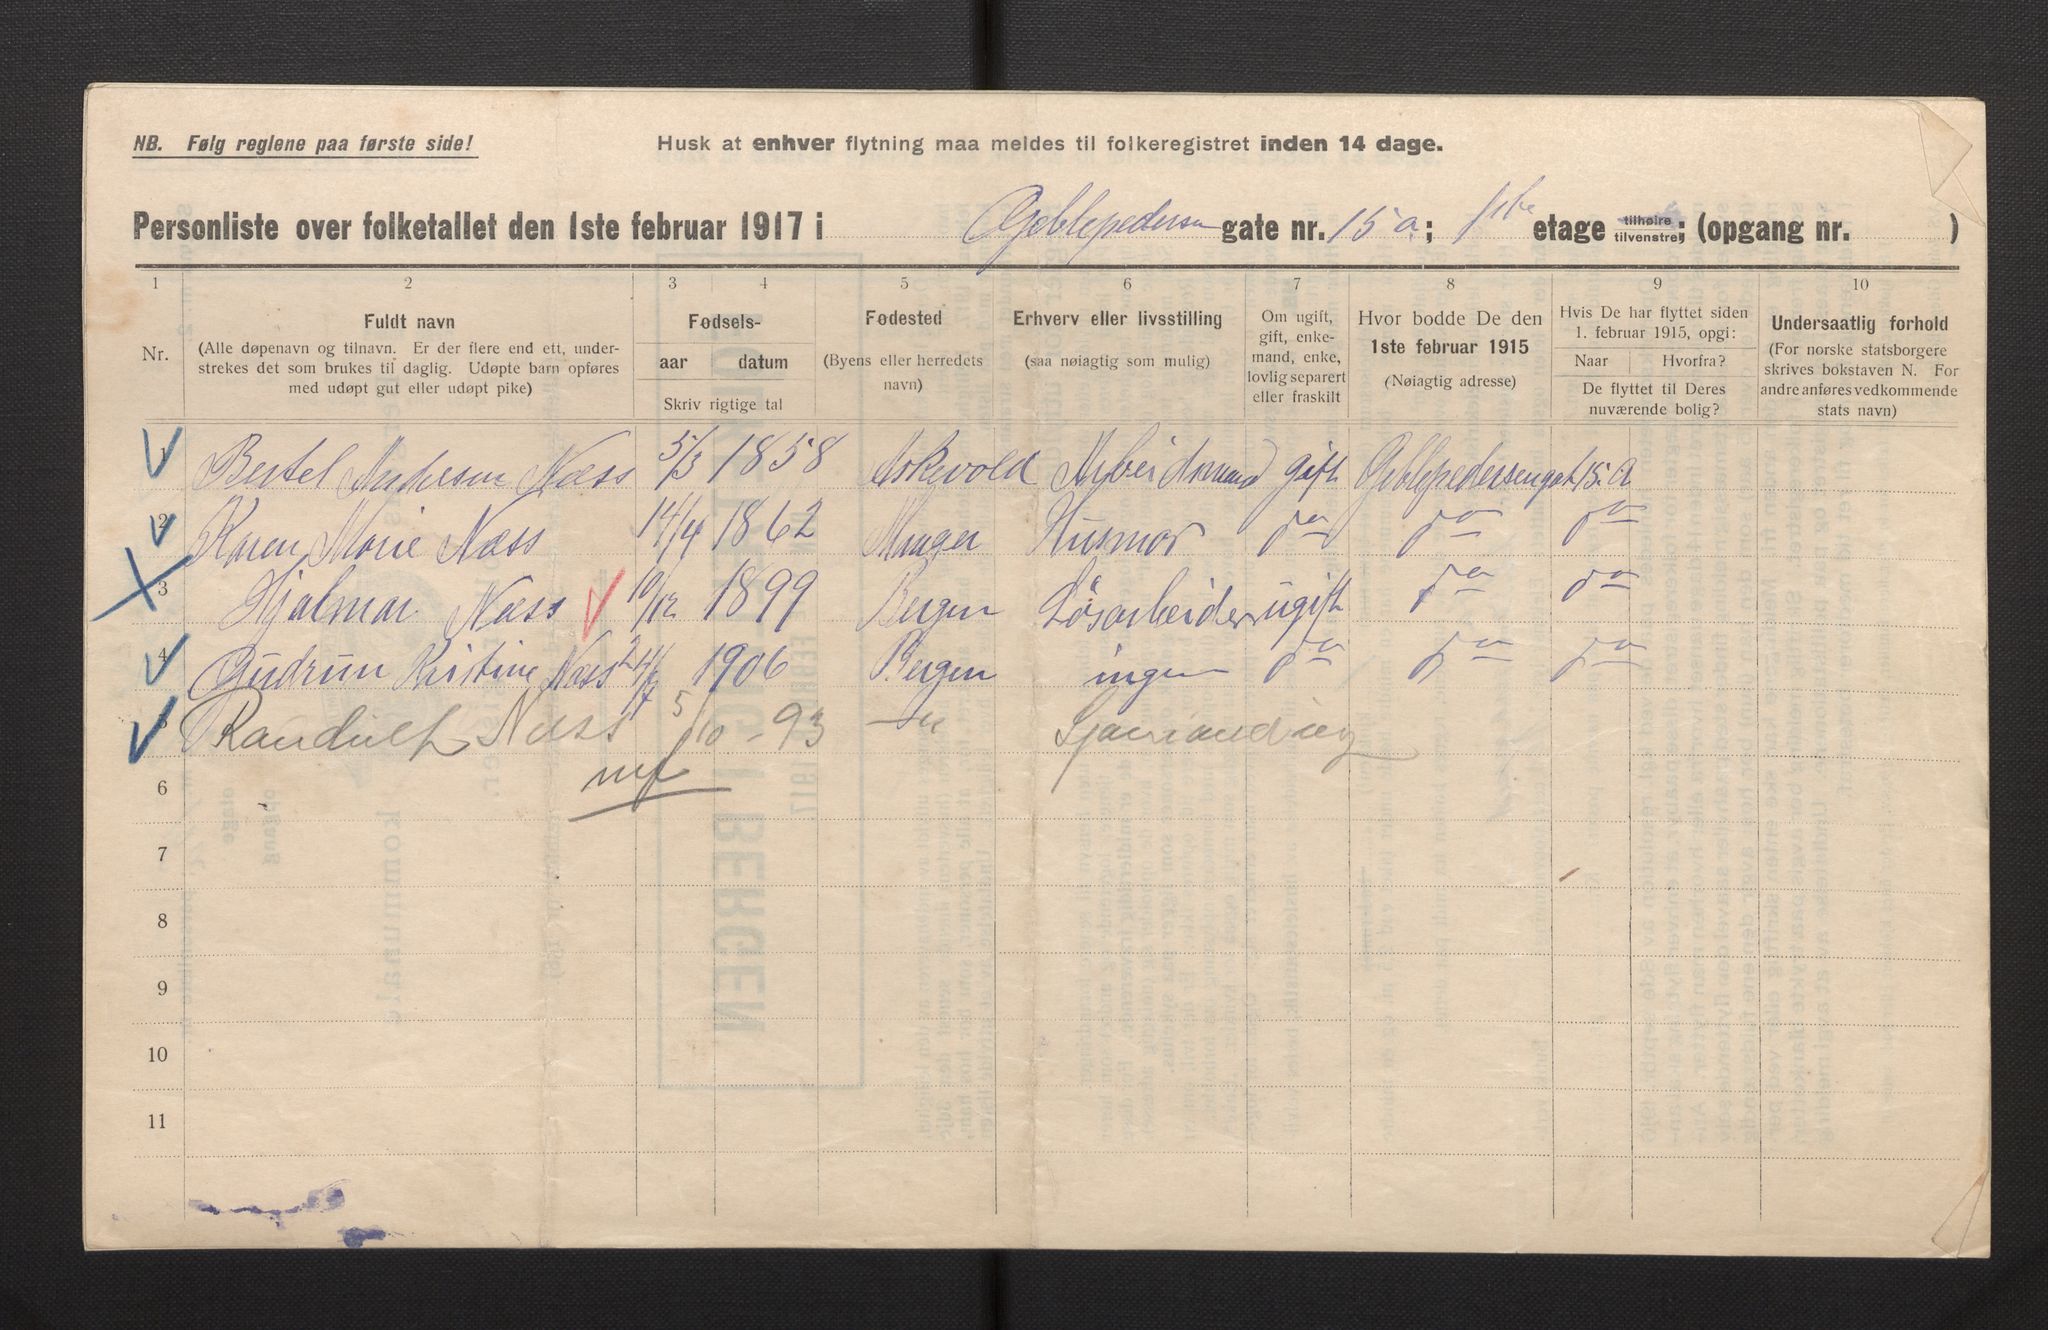 NB. Følg reglene paa første side!
Husk at enhver flytning maa meldes til folkeregistret inden 14 dage.
Personliste over folketallet den 1ste februar 1917 i Geblepedersen gate nr. 15 a; 1ste etage tilhøire tilvenstre; (opgang nr. )
1 2 3 4 5 6 7 8 9 10
Nr.
Fuldt navn
(Alle døpenavn og tilnavn. Er der flere end ett, under-
strekes det som brukes til daglig. Udøpte barn opføres
med udøpt gut eller udøpt pike)
Fødsels-
aar datum
Skriv rigtige tal
Fødested
(Byens eller herredets
navn)
Erhverv eller livsstilling
(saa nøiagtig som mulig)
Om ugift,
gift, enke-
mand, enke,
lovlig separert
eller fraskilt
Hvor bodde De den
1ste februar 1915
(Nøiagtig adresse)
Hvis De har flyttet siden
1. februar 1915, opgi:
Naar Hvorfra?
De flyttet til Deres
nuværende bolig?
Undersaatlig forhold
(For norske statsborgere
skrives bokstaven N. For
andre anføres vedkommende
stats navn)
1 Bertel Andersen Næss 5/3 1858 Askevold Arbeidsmand gift Geblepedersengat 15 a
2 Karen Marie Næss 14/4 1862 Manger Husmor do do do
3 Hjalmar Næss 10/12 1899 Bergen Løsarbeider ugift do do
4 Gudrun Kristine Næss 1906 Bergen ingen do do do
5 Randulf Næss 5/10 - 93 - "
6
7
8
9
10
11